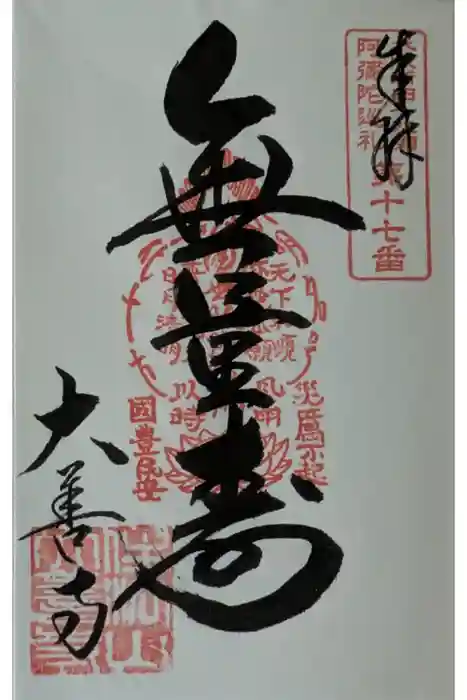 奉拝
阿彌陀巡礼
第十七番
無量寿
天下和順
日月清明
風雨以時
災厲不起
國豊民安
大善寺